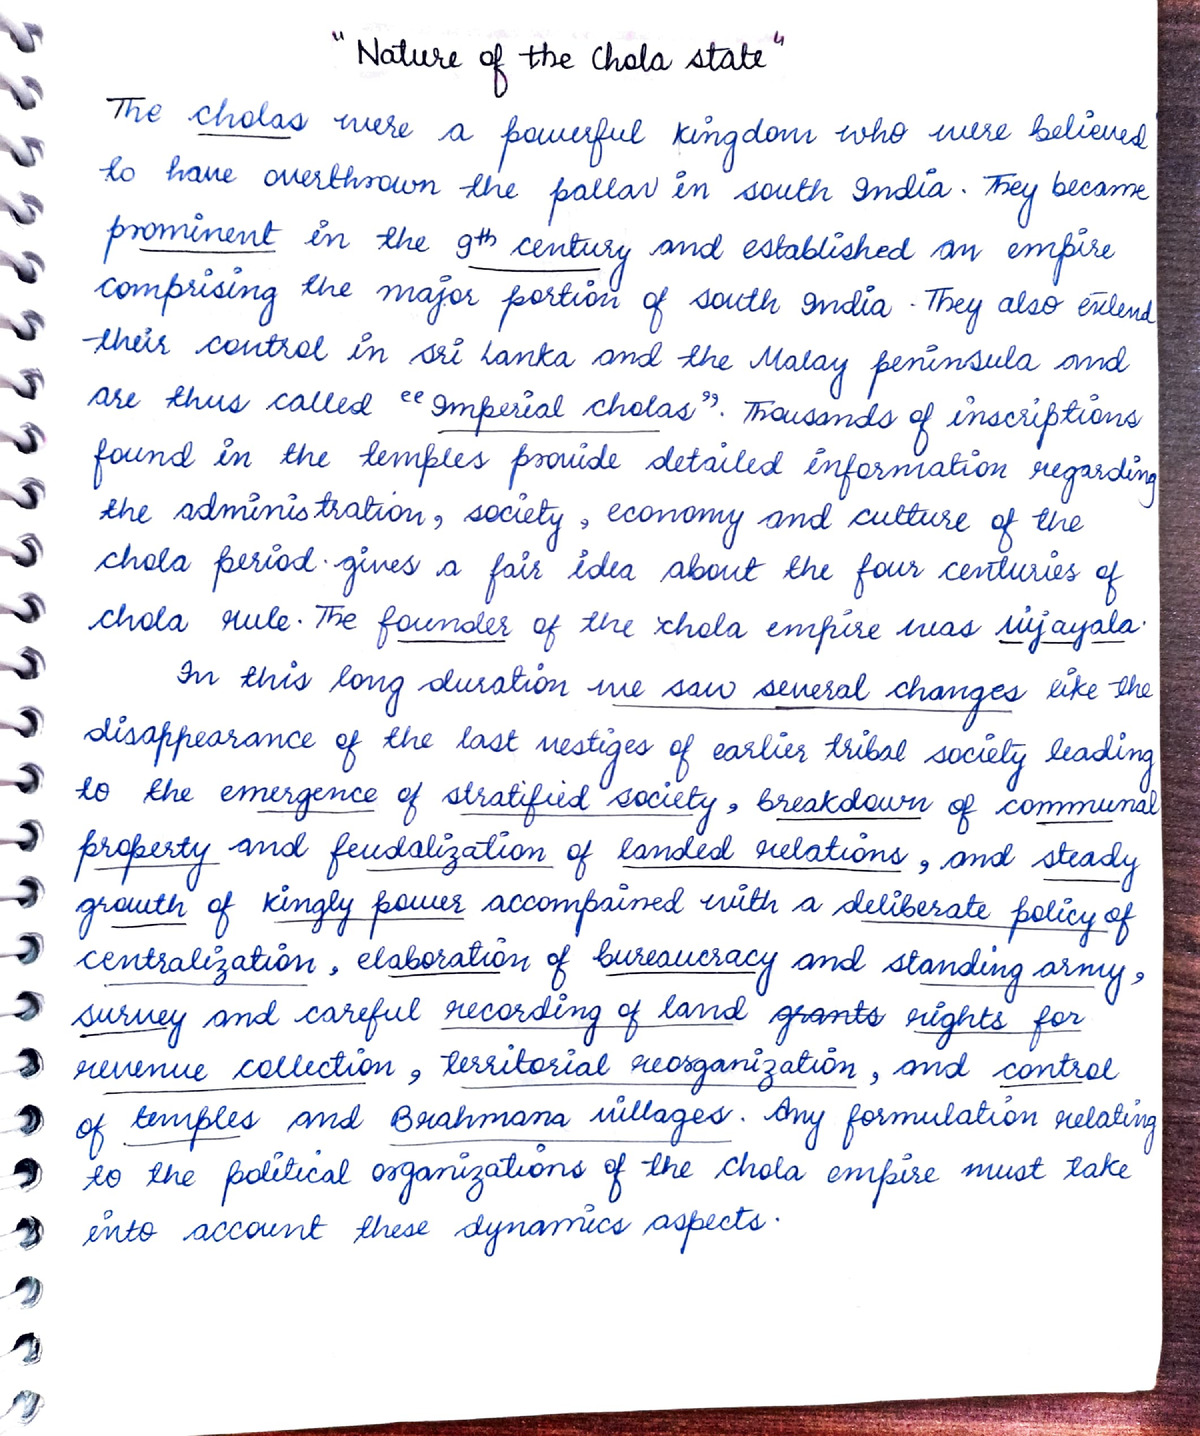 "Nature of the Chola state"
The cholas were a powerful kingdom who were believed
to have overthrown the pallav in south India. They became
prominent in the 9th century and established an empire
comprising the major portion of south India. They also extend
their control in sri Lanka and the Malay peninsula and
are thus called "Imperial cholas". Thousands of inscriptions
found in the temples provide detailed information regarding
the administration, society, economy and culture of the
chola period. gives a fair idea about the four centuries of
chola rule. The founder of the chola empire was vijayala.
In this long duration we saw several changes like the
disappearance of the last vestiges of earlier tribal society leading
to the emergence of stratified society, breakdown of communal
property and feudalization of landed relations, and steady
growth of kingly power accompained with a deliberate policy of
centralization, elaboration of bureaucracy and standing army,
survey and careful recording of land grants rights for
revenue collection, territorial reorganization, and control
of temples and Brahmana villages. Any formulation relating
to the political organizations of the chola empire must take
into account these dynamics aspects.